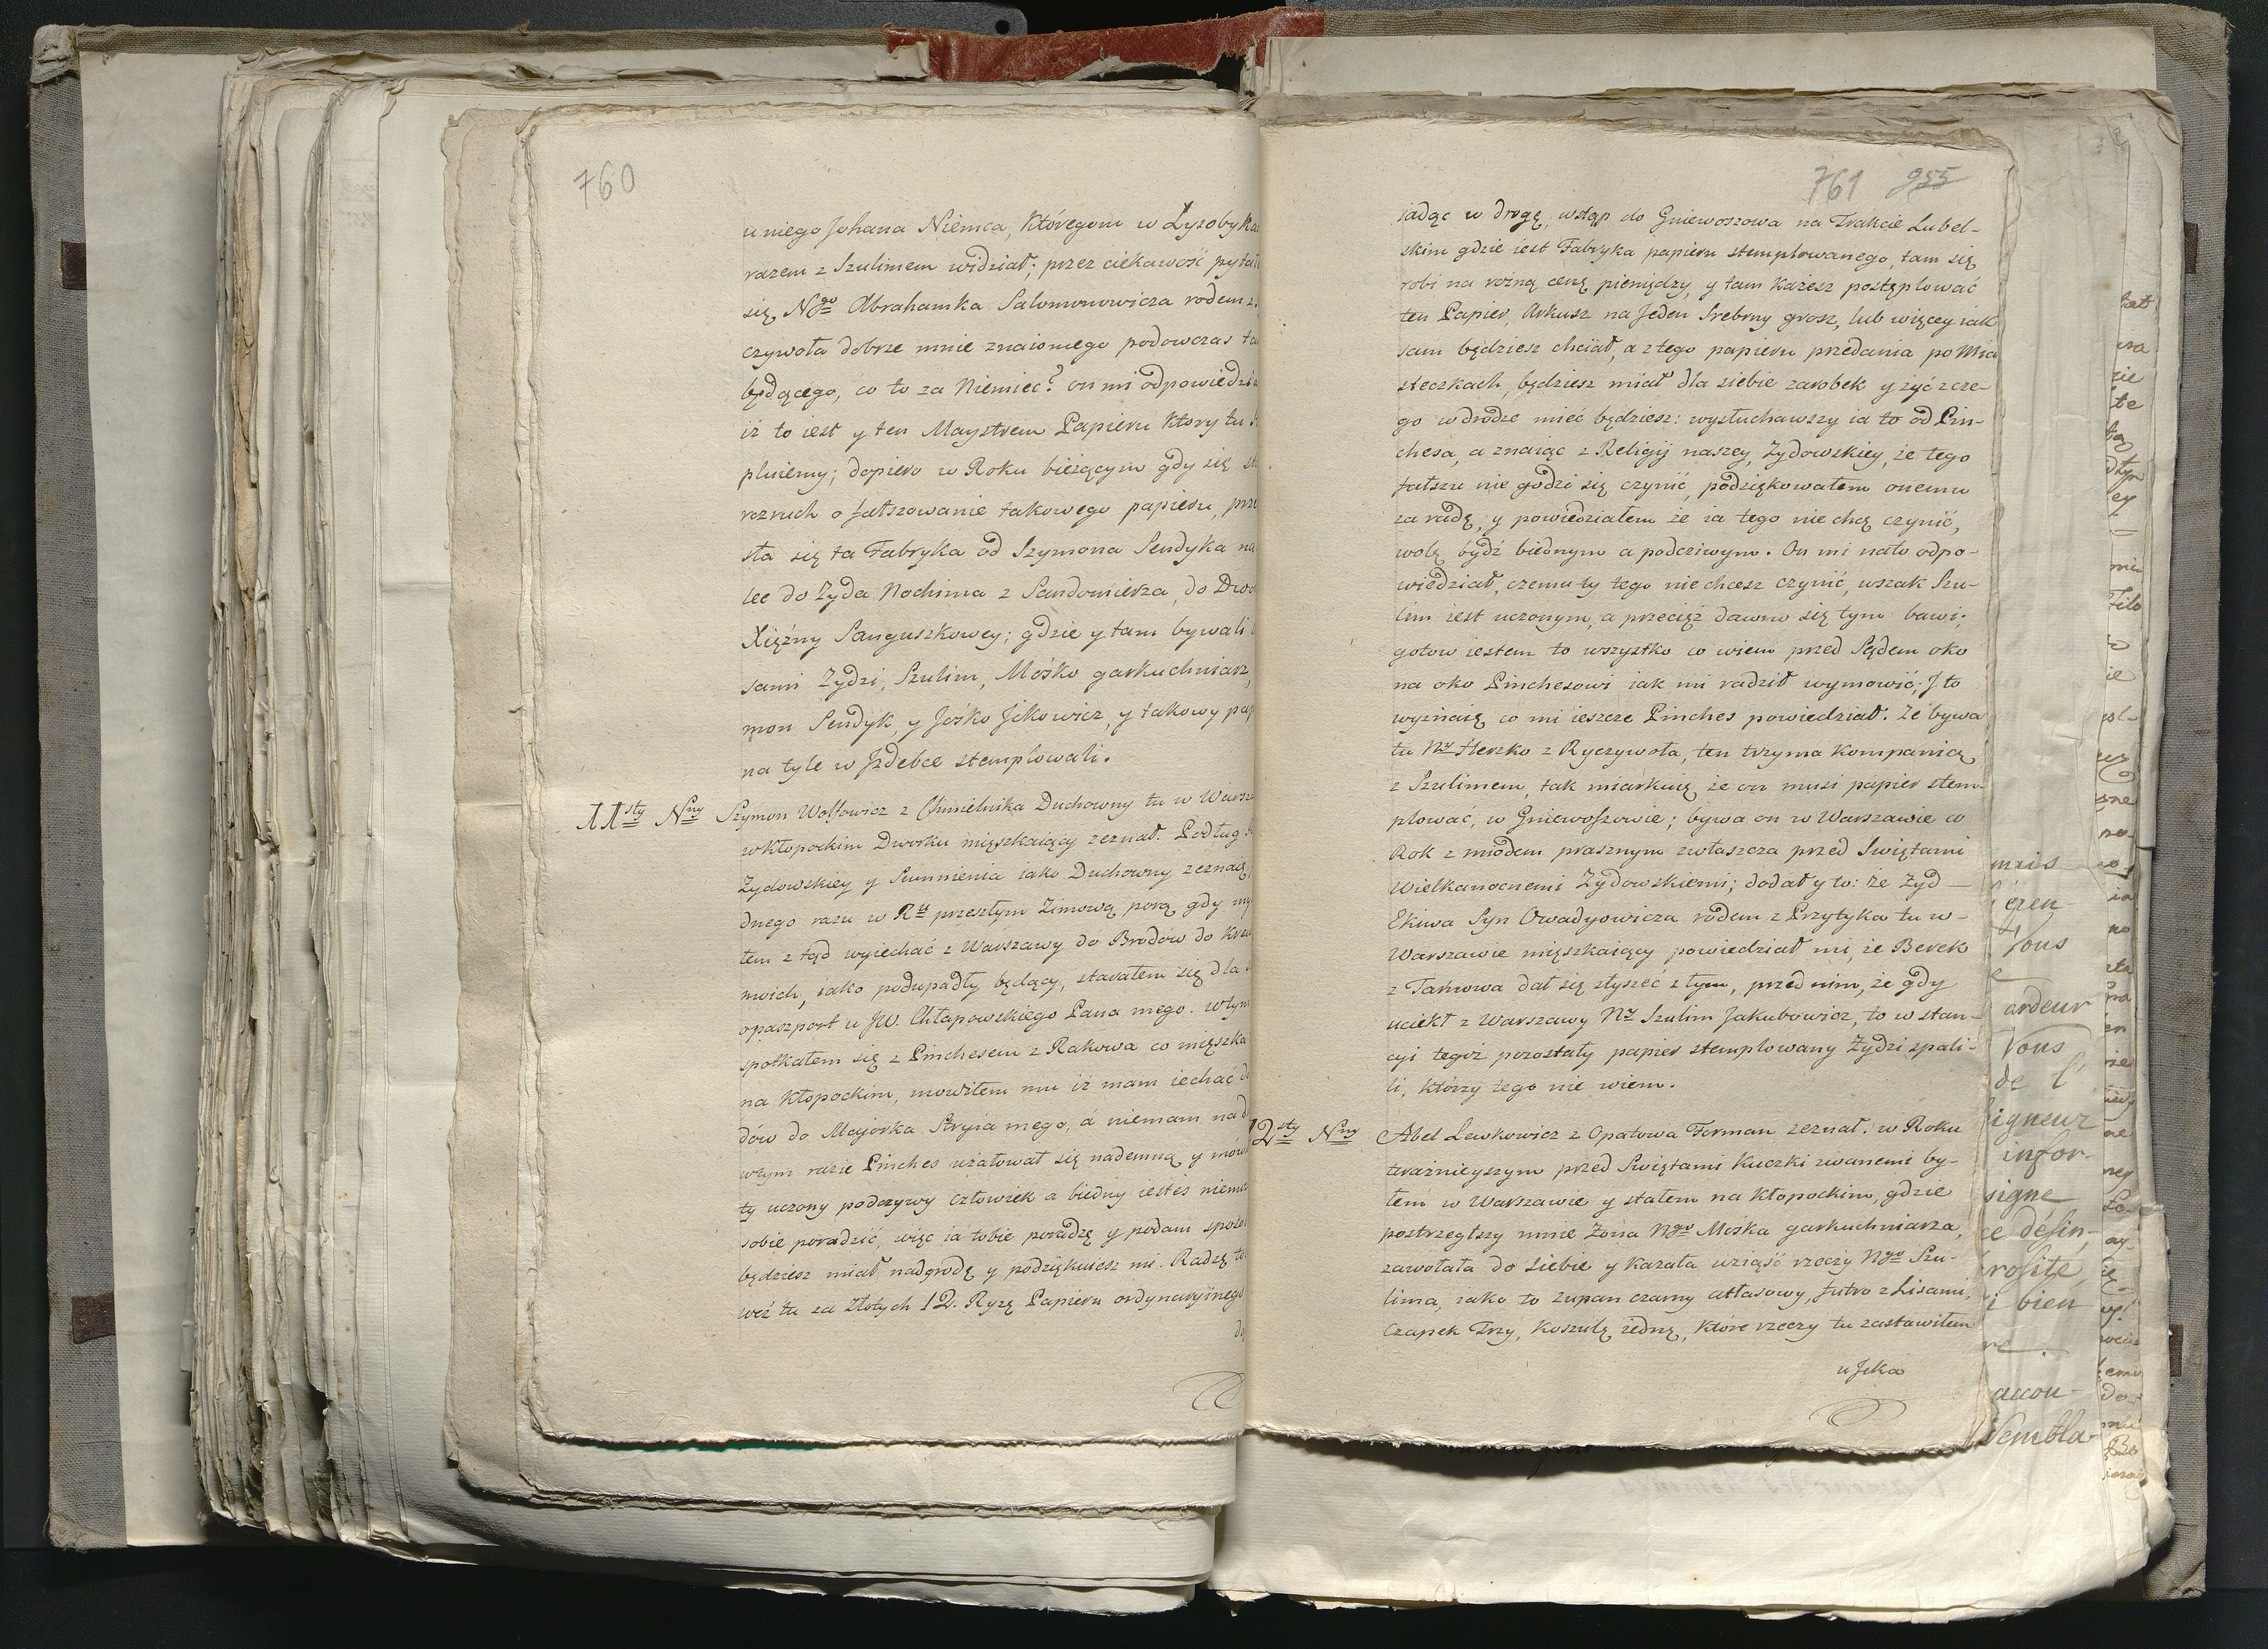 760
u niego Johana Niemca, Któregom w Łysobyka
razem z Szulimem widział; przez ciekawość pytał
się Ngo Abrahamka Salomonowicza rodem z
czywoła dobrze mnie znaiomego podowczas ta
będącego, co to za Niemiec? on mi odpowiedzia
iż to iest y ten Maystrem Papieru Ktory tu
plniemy; dopiero w Roku bieżącym gdy się
roznuch o fałszowanie takowego papieru, prze
sła się ta Fabryka od Szymona Sendyka na
lec do Żyda Nochima z Sandomierza, do Dwo
Xiężny Sanguszkowey; gdzie y tam bywali
sami Żydzi, Szulim, Mośko garkuchniarz,
mon Sendyk, y Jośko Jckowicz, y takowy pap
na tyle w Jzdebce stemplowali.
11sty Nny Szymon Wolfowicz z Chmielnika Duchowny tu w Warsz
w Kłopockim Dworku mięszkaiący zeznał. Podług
Żydowskiey y Sumnienia iako Duchowny zeznaię,
dnego razu w Ru przeszłym Zimową porą gdy my
tem z tąd wyiechać z Warszawy do Brodów do Krew
moich, iako podupadły będący, starałem się dla
opaszport u JW. Chłapowskiego Pana mego. w tym
spotkałem się z Pinchesem z Rakowa co mięszka
na Kłopockim, mowiłem mu iż mam iechać d
dów do Majorka Stryia mego, á niemam na d
w tym razie Pinches użałował się nademną y mów
ty uczony podczywy człowiek a biedny iestes niemo
sobie poradzić, więc ia tobie poradzę y podam sposo
będziesz miał nadgrodę y podziękuiesz mi. Radzę to
weź tu za złotych 12. Ryzę Papieru ordynaryinego
do
761 955
iadąc w drogę, wstąp do Gniewoszowa na Trakcie Lubel-
skim gdzie iest Fabryka papieru stemplowanego, tam się
robi na rożną cenę pieniędzy, y tam każesz postęplować
ten Papier, Arkusz na Jeden Srebrny grosz, lub więcey iak
sam będziesz chciał, a z tego papieru przedania po Mia
steczkach, będziesz miał dla siebie zarobek y żyć z cze-
go w drodze mieć będziesz: wysłuchawszy ia to od Pin-
chesa, a znaiąc z Religij naszey, Żydowskiey, że tego
fałszu nie godzi się czynić, podziękowałem onemu
za radę, y powiedziałem że ia tego nie chcę czynić,
wolę bydź biednym a podcziwym. On mi nato odpo-
wiedział, czemu ty tego nie chcesz czynić, wszak Szu-
lim iest uczonym, a przecięż dawno się tym bawi;
gotow iestem to wszystko co wiem przed Sądem oko
na oko Pinchesowi iak mi radził wymowić; J to
wyznaię co mi ieszcze Pinches powiedział. Że bywa
tu Ny Herszko z Ryczywoła, ten trzyma Kompanią
z Szulimem, tak miarkuię że on musi papier stem-
plować, w Gniewoszowie; bywa on w Warszawie co
Rok z miodem prasznym zwłaszcza przed Swiętami
Wielkanocnemi Żydowskiemi; dodał y to: że Żyd
Ekiwa Syn Owadyowicza rodem z Przytyka tu w-
Warszawie mięszkaiący powiedział mi, że Berek
z Tarnowa dał się słyszeć z tym, przed nim, że gdy
uciekł z Warszawy Ny Szulim Jakubowicz, to w stan-
cyi tegoż pozostały papier stemplowany Żydzi spali-
li, ktorzy tego nie wiem.
12sty Nny Abel Lewkowicz z Opatowa Furman zeznał. w Roku
teraźnieyszym przed Swiętami Kuczki zwanemi by-
łem w Warszawie y stałem na Kłopockim, gdzie
postrzegłszy mnie Żona Ngo Mośka garkuchniarza,
zawołała do siebie y kazała uziąść rzeczy Ngo Szu-
lima, iako to zupan czarny atłasowy, futro z Lisami,
Czapek Trzy, Koszulę iedną, Które rzeczy tu zastawiłem
u Jcka
ardeur
Vous
de l'
infor-
signe
ce désin-
bien